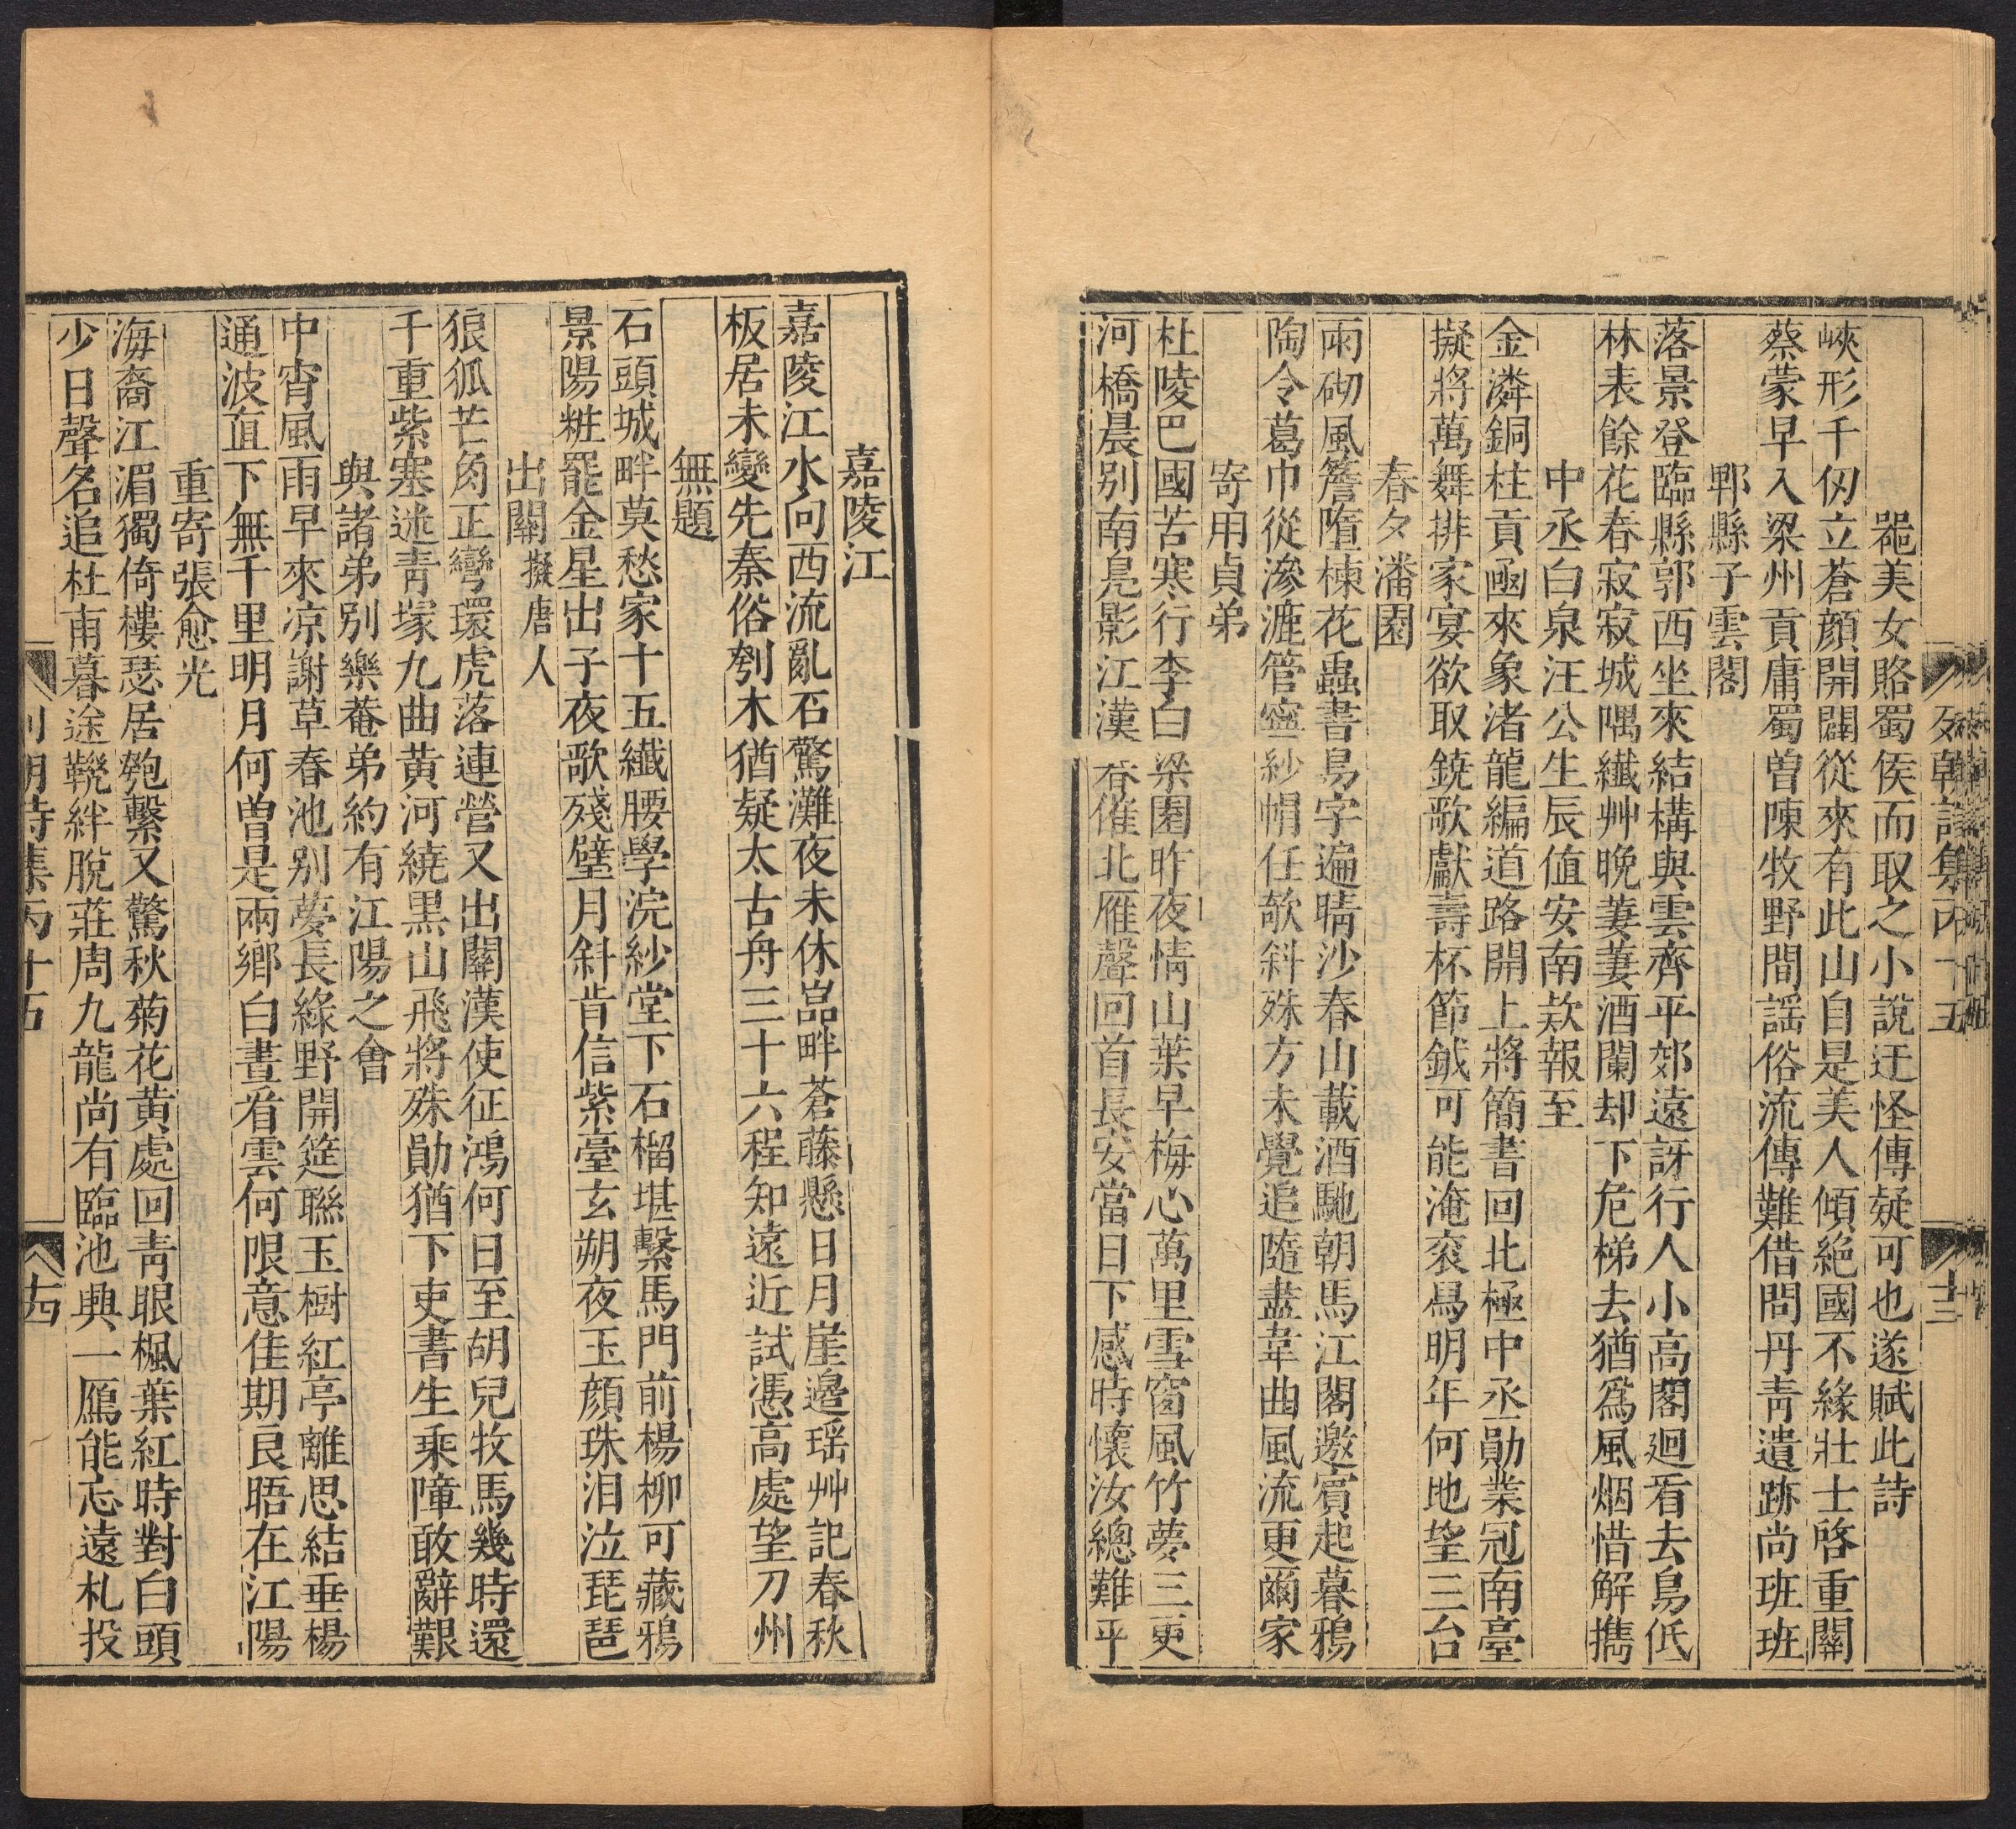 列朝詩集丙十五
十三
葩美女賂蜀侯而取之小說迂怪傳疑可也遂賦此詩
峽形千仞立蒼顏開闢從來有此山自是美人傾絕國不緣壯士啓重關
蔡蒙早入梁州貢庸蜀曽陳牧野間謡俗流傳難借問丹靑遺跡尚班班
郫縣子雲閣
落景登臨縣郭西坐來結構與雲齊平郊遠訝行人小高閣廻看去鳥低
林表餘花春寂寂城隅纖艸晚萋萋酒闌却下危梯去猶爲風烟惜解攜
中丞白泉汪公生辰值安南欵報至
金潾銅柱貢凾來象渚龍編道路開上將簡書回北極中丞勛業冠南臺
擬將萬舞排家宴欲取鐃歌獻壽杯節鉞可能淹袞舄明年何地望三台
春夕潘園
雨砌風簷墮楝花蟲書易字遍晴沙春山載酒馳朝馬江閣邀賓起暮鴉
陶令葛巾從滲漉管寧紗帽任欹斜殊方未覺追隨盡韋曲風流更爾家
寄用貞弟
杜陵巴國苦寒行李白梁園昨夜情山葉早梅心萬里雪窗風竹夢三更
河橋晨別南鳧影江漢春催北雁聲回首長安當日下感時懷汝總難平
嘉陵江
嘉陵江水向西流亂石驚灘夜未休嵓畔蒼藤懸日月崖邉瑶艸記春秋
板居未變先秦俗刳木猶疑太古舟三十六程知遠近試憑高處望刀州
無題
石頭城畔莫愁家十五纖腰學浣紗堂下石榴堪繫馬門前楊柳可藏鴉
景陽粧罷金星出子夜歌殘璧月斜肯信紫臺玄朔夜玉顏珠泪泣琵琶
出關擬唐人
狼狐芒角正彎環虎落連營又出關漢使征鴻何日至胡兒牧馬幾時還
千重紫塞迷靑塚九曲黄河繞黒山飛將殊勛猶下吏書生乘障敢辭艱
與諸弟別樂菴弟約有江陽之會
中宵風雨早來凉謝草春池別夢長綠野開筵聯玉樹紅亭離思結垂楊
通波直下無千里明月何曽是兩鄉白晝看雲何限意佳期良晤在江陽
重寄張愈光
海裔江湄獨倚樓瑟居匏繫又驚秋菊花黄處回靑眼楓葉紅時對白頭
少日聲名追杜甫暮途鞿絆脫莊周九龍尚有臨池興一鴈能忘遠札投
列朝詩集丙十五
十四